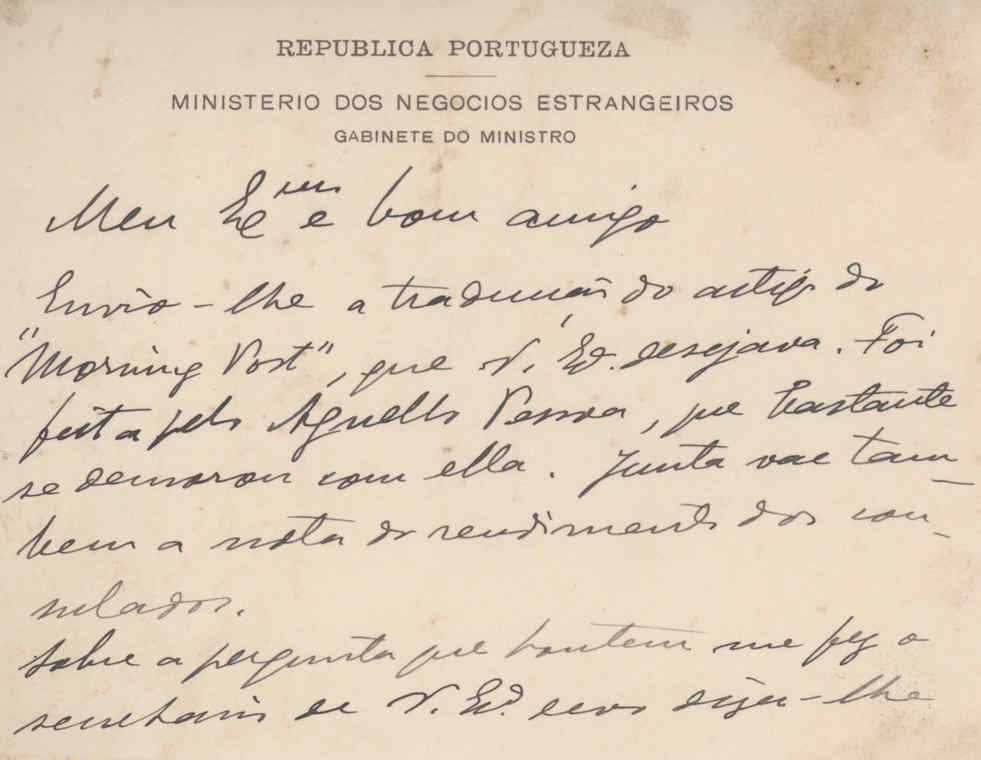 REPUBLICA PORTUGUEZA
MINISTERIO DOS NEGOCIOS ESTRANGEIROS
GABINETE DO MINISTRO
Meu Exmo e bom amigo
Envio-lhe a traducção do artigo do
"Morning Post", que V. Exª. desejava. Foi
feita pelo Agnello Pessoa, que bastante
se demorou com ella. Junta vae tam-
bem a nota do rendimento dos con-
sulados.
Sobre a pergunta que hontem me fez o
secretario de V. Exª. devo dizer-lhe